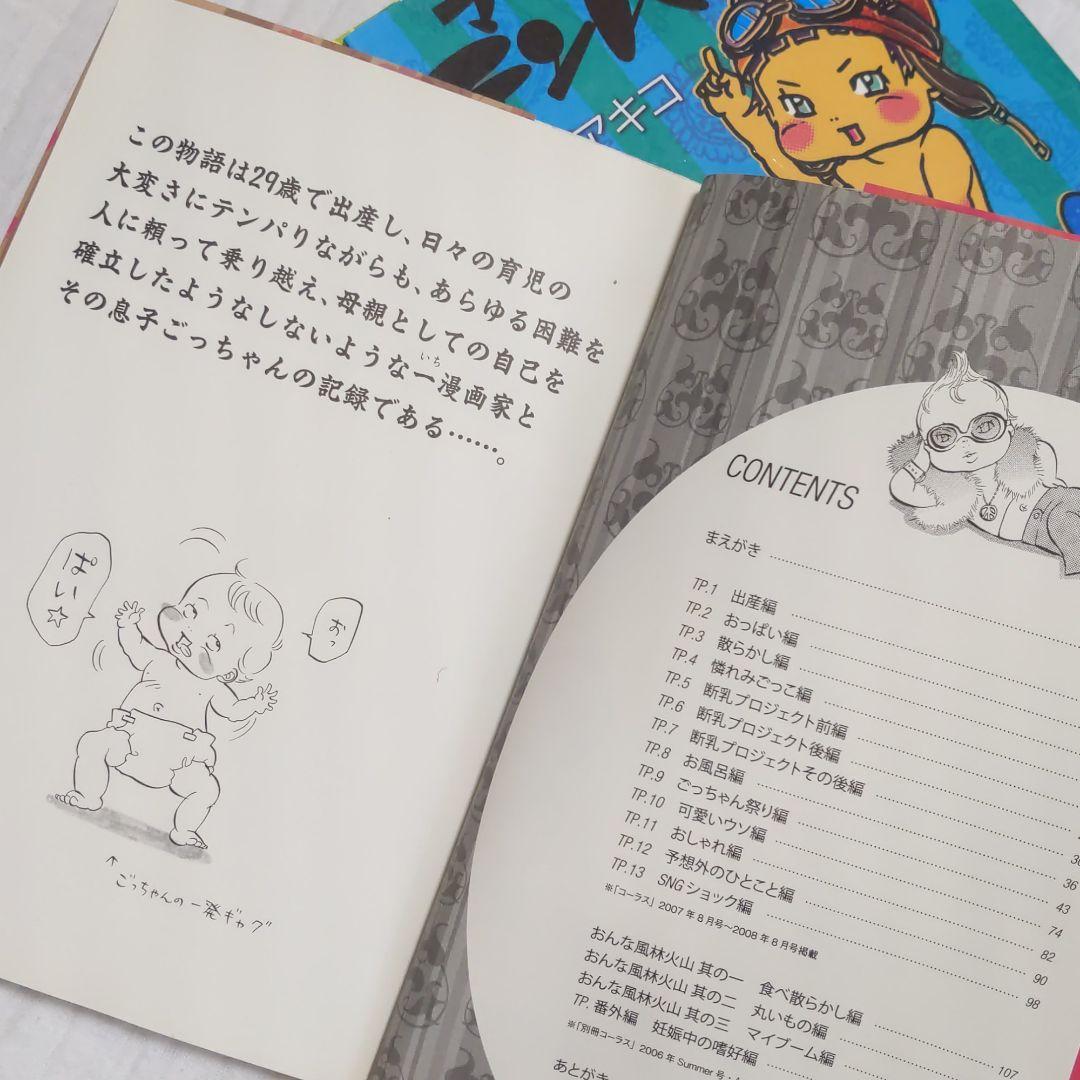 アキコ
この物語は29歳で出産し、日々の育児の
大変さにテンパりながらも、あらゆる困難を
人に頼って乗り越え、母親としての自己を
確立したようなしないような一漫画家と
いち
その息子ごっちゃんの記録である……。
ぱい☆
おっ
↑
ごっちゃんの一発ギャグ
CONTENTS
まえがき
TP.1 出産編
TP.2 おっぱい編
TP.3 散らかし編
TP.4 憐れみごっこ編
TP.5 断乳プロジェクト前編
TP.6 断乳プロジェクト後編
TP.7 断乳プロジェクトその後編
TP.8 お風呂編
TP.9 ごっちゃん祭り編
TP.10 可愛いウソ編
TP.11 おしゃれ編
TP.12 予想外のひとこと編
TP.13 SNGショック編
36
43
74
82
90
98
※「コーラス」2007年8月号〜2008年8月号掲載
おんな風林火山 其の一 食べ散らかし編
おんな風林火山 其の二 丸いもの編
おんな風林火山 其の三 マイブーム編
TP.番外編 妊娠中の嗜好編
107
※「別冊コーラス」2006年Summer号・
あとがき